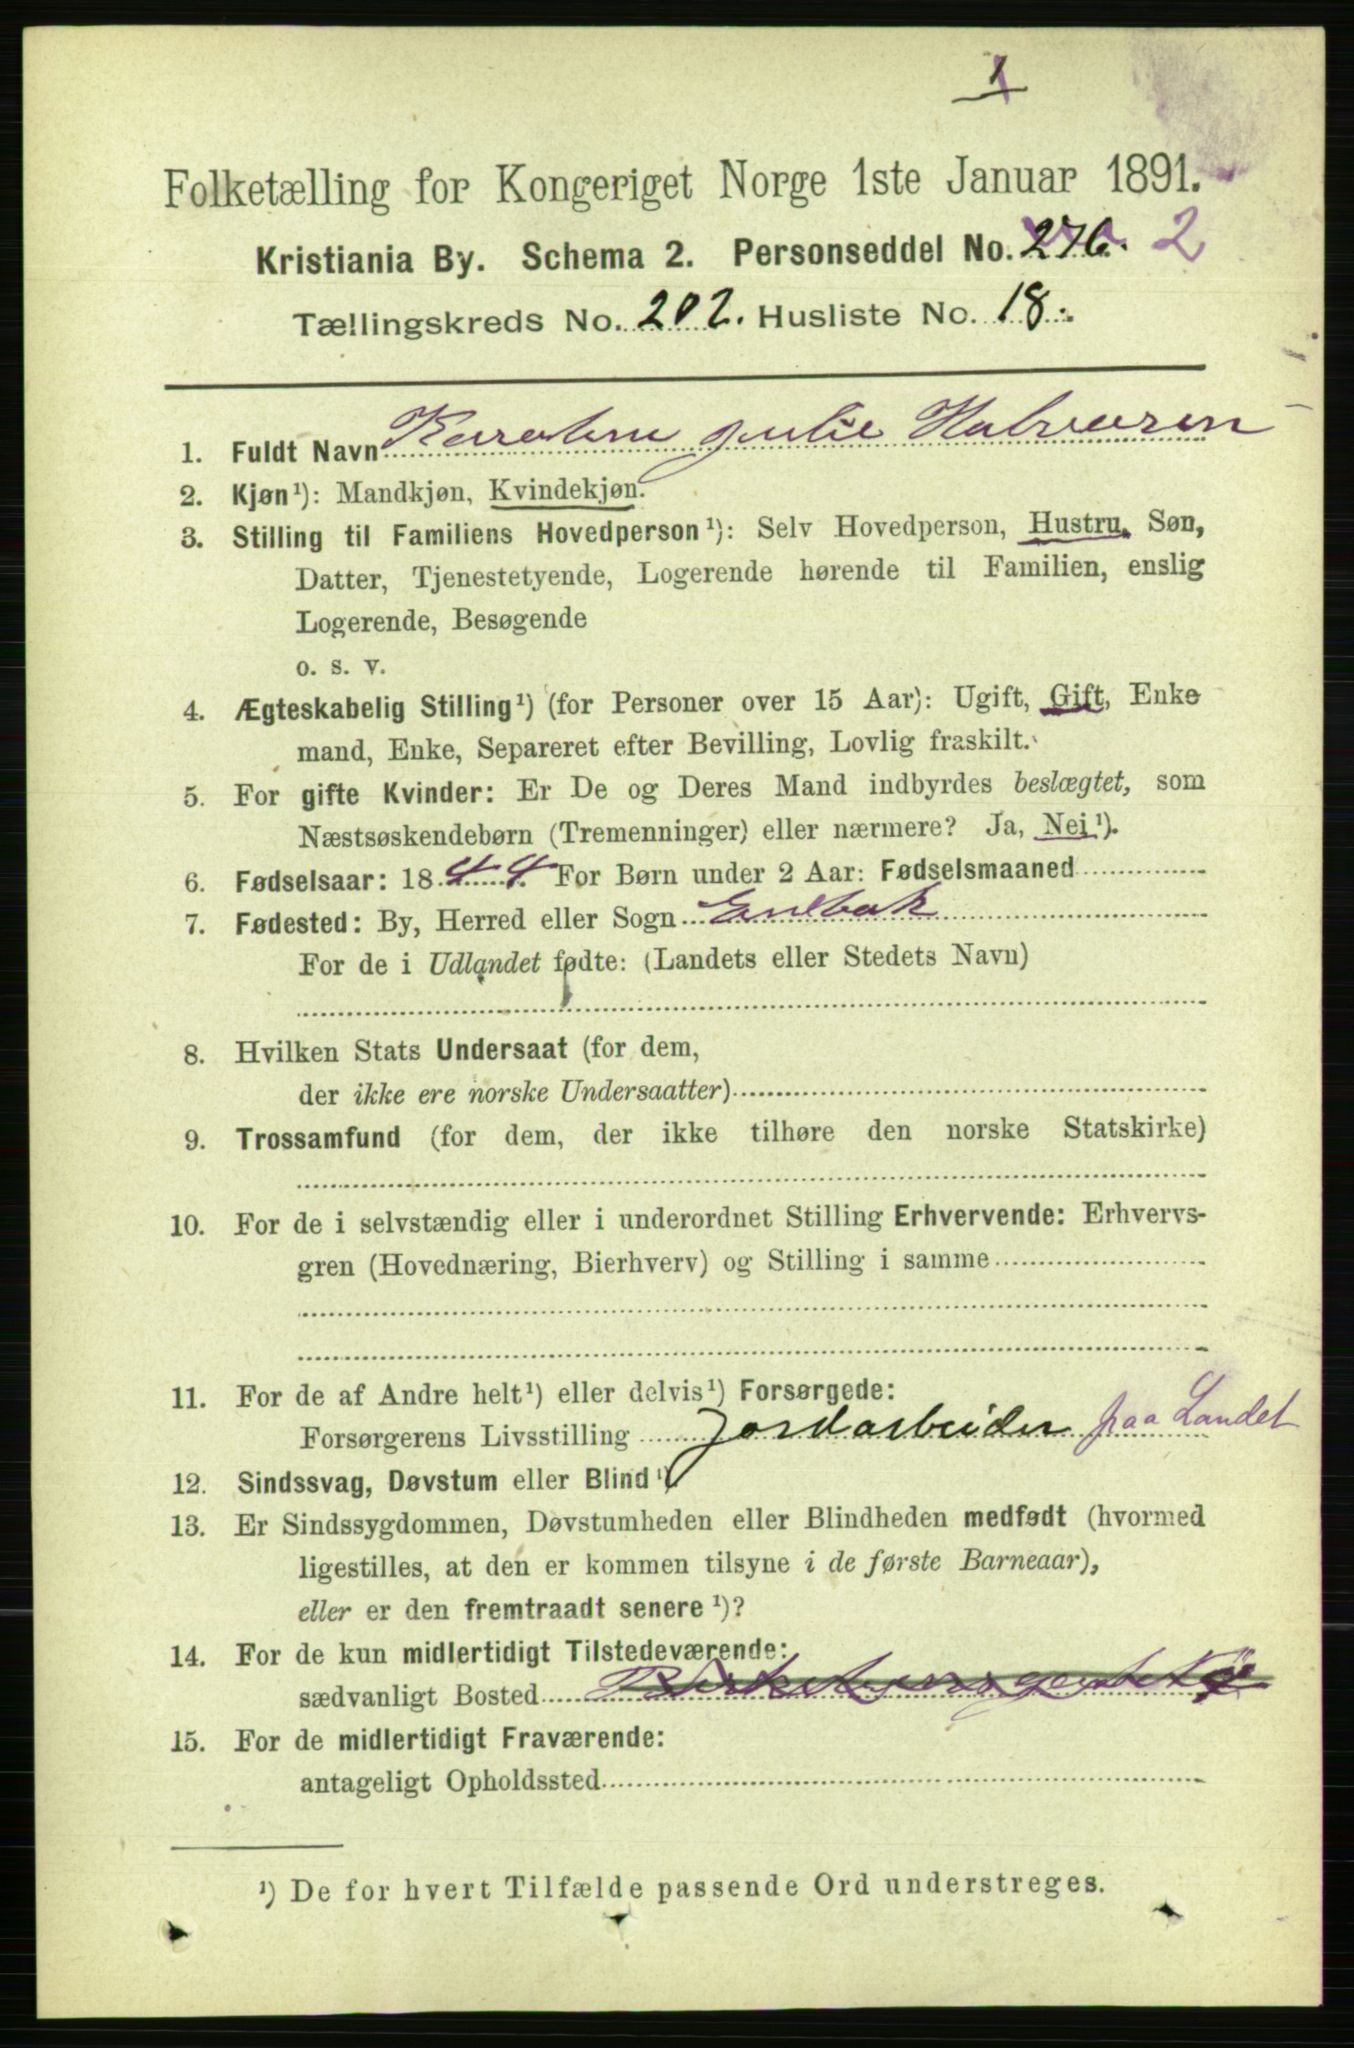 1
Folketælling for Kongeriget Norge 1ste Januar 1891.
Kristiania By. Schema 2. Personseddel No. 276. 2
Tællingskreds No. 202. Husliste No. 18.
1. Fuldt Navn Karoline Julie Halvorsen
2. Kjøn¹): Mandkjøn, Kvindekjøn.
3. Stilling til Familiens Hovedperson¹): Selv Hovedperson, Hustru, Søn,
Datter, Tjenestetyende, Logerende hørende til Familien, enslig
Logerende, Besøgende
o. s. v.
4. Ægteskabelig Stilling¹) (for Personer over 15 Aar): Ugift, Gift, Enke
mand, Enke, Separeret efter Bevilling, Lovlig fraskilt.
5. For gifte Kvinder: Er De og Deres Mand indbyrdes beslægtet, som
Næstsøskendebørn (Tremenninger) eller nærmere? Ja, Nei¹).
6. Fødselsaar: 1844. For Børn under 2 Aar: Fødselsmaaned
7. Fødested: By, Herred eller Sogn Enebak
For de i Udlandet fødte: (Landets eller Stedets Navn)
8. Hvilken Stats Undersaat (for dem,
der ikke ere norske Undersaatter)
9. Trossamfund (for dem, der ikke tilhøre den norske Statskirke)
10. For de i selvstændig eller i underordnet Stilling Erhvervende: Erhvervs-
gren (Hovednæring, Bierhverv) og Stilling i samme
11. For de af Andre helt¹) eller delvis¹) Forsørgede:
Forsørgerens Livsstilling Jordarbeider paa Landet
12. Sindssvag, Døvstum eller Blind¹)
13. Er Sindssygdommen, Døvstumheden eller Blindheden medfødt (hvormed
ligestilles, at den er kommen tilsyne i de første Barneaar),
eller er den fremtraadt senere¹)?
14. For de kun midlertidigt Tilstedeværende:
sædvanligt Bosted
15. For de midlertidigt Fraværende:
antageligt Opholdssted
¹) De for hvert Tilfælde passende Ord understreges.